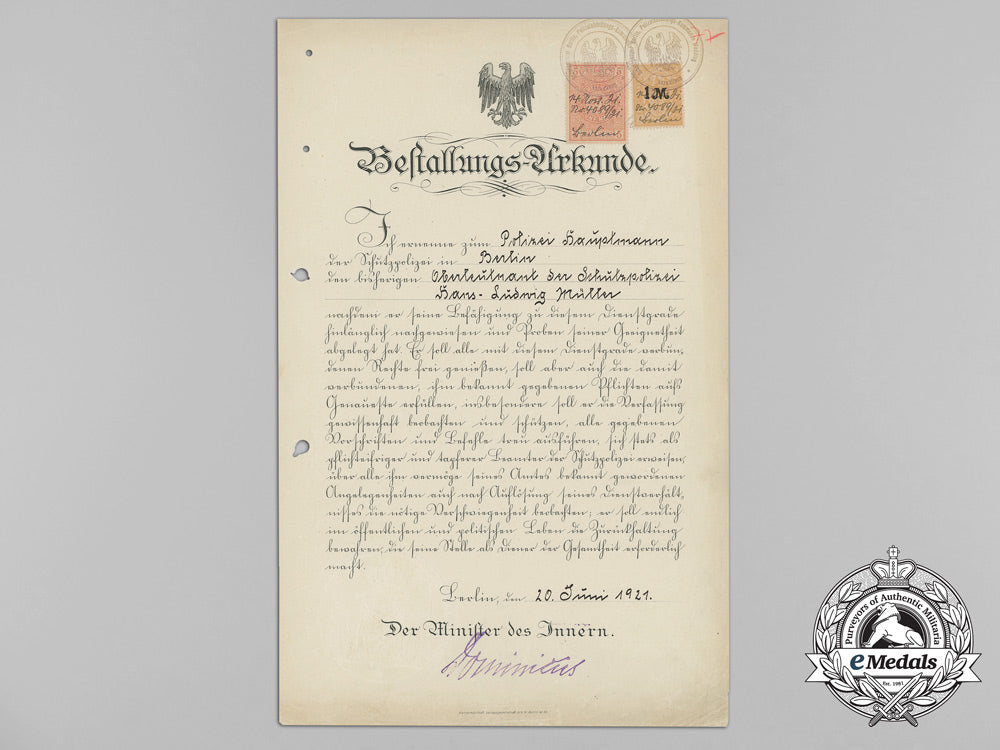 14. Nov. 21.
No 4089/21.
Berlin
1M
No 4089/21
Berlin
Bestallungs-Urkunde.
Ich ernenne zum Polizei Hauptmann
der Schutzpolizei in Berlin
den bisherigen Oberleutnant der Schutzpolizei
Hans-Ludwig Müller
nachdem er seine Befähigung zu diesem Dienstgrade
hinlänglich nachgewiesen und Proben seiner Geeignetheit
abgelegt hat. Er soll alle mit diesem Dienstgrade verbun-
denen Rechte frei genießen, soll aber auch die damit
verbundenen, ihm bekannt gegebenen Pflichten aufs
Genaueste erfüllen, insbesondere soll er die Verfassung
gewissenhaft beobachten und schützen, alle gegebenen
Vorschriften und Befehle treu ausführen, sich stets als
pflichteifriger und tapferer Beamter der Schutzpolizei erweisen,
über alle ihm vermöge seines Amtes bekannt gewordenen
Angelegenheiten auch nach Auflösung seines Dienstverhält-
nisses die nötige Verschwiegenheit beobachten; er soll endlich
im öffentlichen und politischen Leben die Zurückhaltung
bewahren, die seine Stelle als Diener der Gesamtheit erforderlich
macht.
Berlin, den 20. Juni 1921.
Der Minister des Innern.
Dominicus
Purveyors of Authentic Militaria
eMedals
Est. 1981